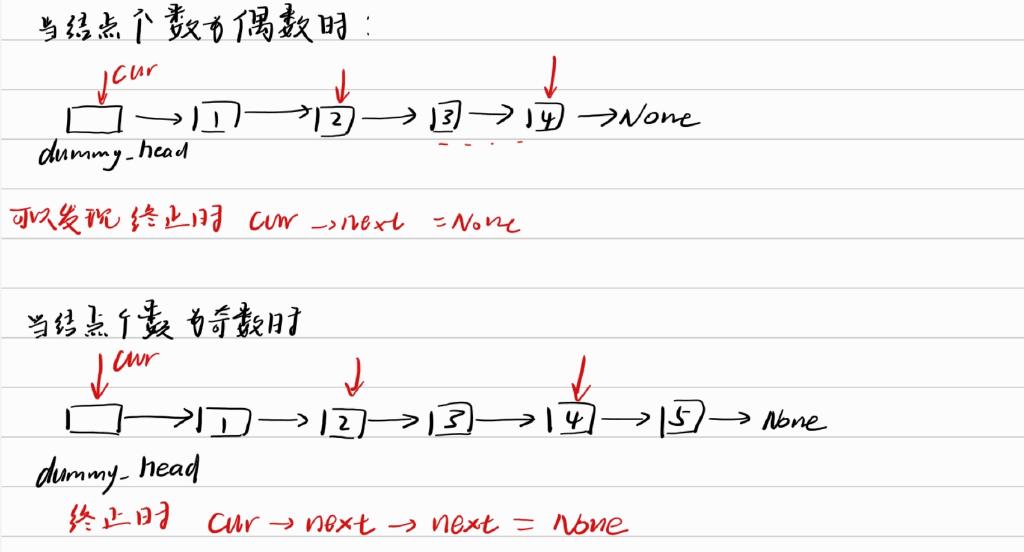 当结点个数为偶数时:
cur
1 → 2 → 3 → 4 → None
dummy_head
可以发现终止时 cur → next = None
当结点个数为奇数时
cur
1 → 2 → 3 → 4 → 5 → None
dummy_head
终止时 cur → next → next = None